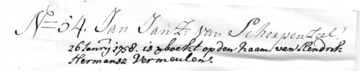 N=54. Jan Janz: van Scherpenzeel
26 Janrij 1758. is geboekt op den naam van Hendrik
Hermanse Vermeulen.